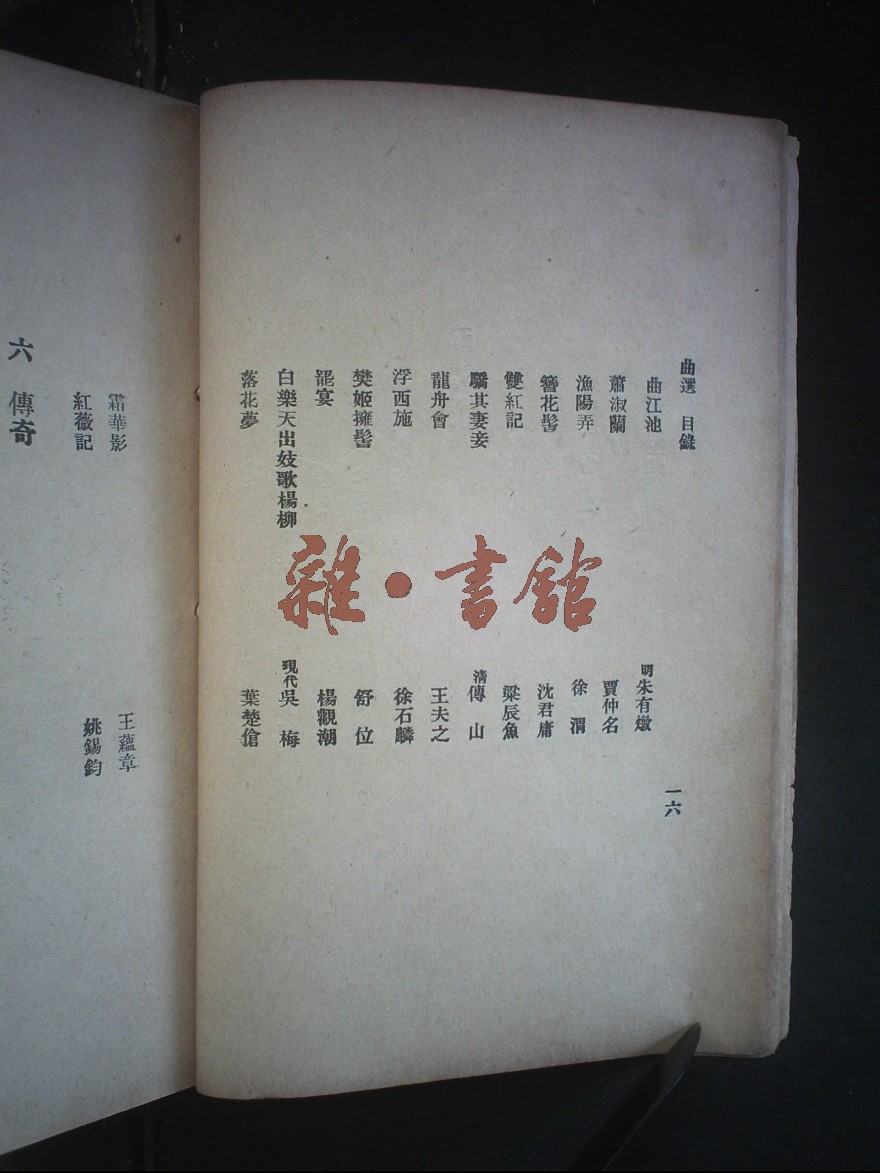 曲選　目錄
曲江池　明朱有燉
蕭淑蘭　賈仲名
漁陽弄　徐渭
簪花髻　沈君庸
雙紅記　梁辰魚
驕其妻妾　清傅山
龍舟會　王夫之
浮西施　徐石麟
樊姬擁髻　舒位
罷宴　楊觀潮
白樂天出妓歌楊柳　現代吳梅
落花夢　葉楚傖
一六
霜華影　王蘊章
紅薇記　姚錫鈞
六　傳奇
雜·書館